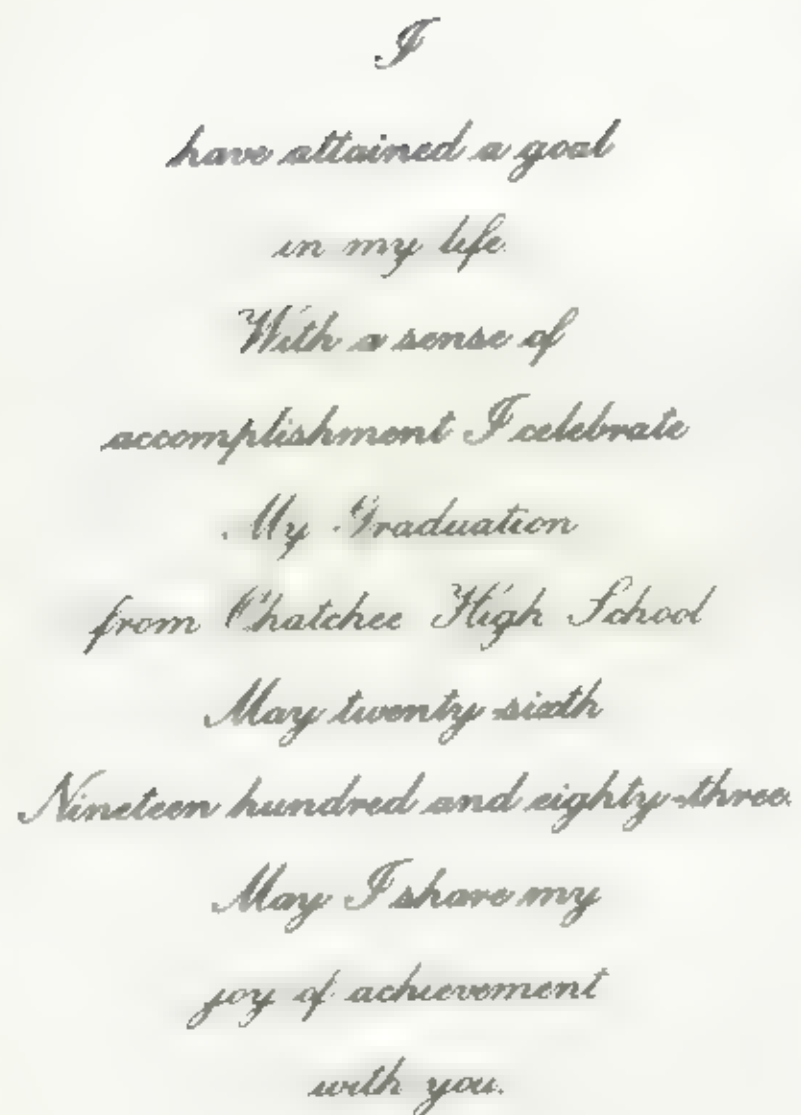 I
have attained a goal
in my life.
With a sense of
accomplishment I celebrate
My Graduation
from Ohatchee High School
May twenty-sixth
Nineteen hundred and eighty-three.
May I share my
joy of achievement
with you.